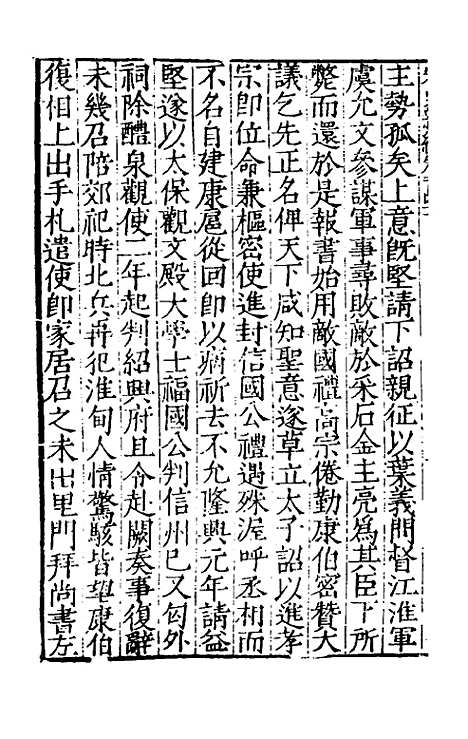 主勢孤矣上意旣堅請下詔親征以葉義問督江淮軍
虞允文參謀軍事尋敗敵於采石金主亮為其臣下所
斃而還於是報書始用敵國禮高宗倦勤康伯密贊大
議乞先正名俾天下咸知聖意遂草立太子詔以進孝
宗即位命兼樞密使進封信國公禮遇殊渥呼丞相而
不名自建康扈從回即以病祈去不允隆興元年請益
堅遂以太保觀文殿大學士福國公判信州巳又匄外
祠除醴泉觀使二年起判紹興府且令赴闕奏事復辭
未幾召陪郊祀時北兵再犯淮甸人情驚駭皆望康伯
復相上出手札遣使即家居召之未出里門拜尚書左